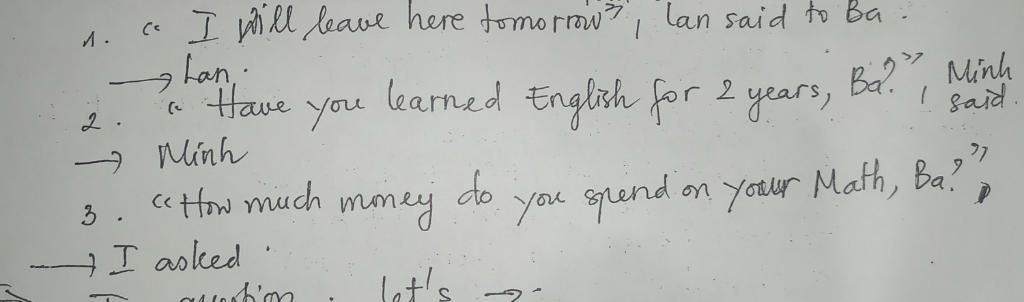 1. " I will leave here tomorrow", Lan said to Ba.
→ Lan.
2. " Have you learned English for 2 years, Ba?", Minh said.
→ Minh
3. "How much money do you spend on your Math, Ba?",
→ I asked
question. let's →